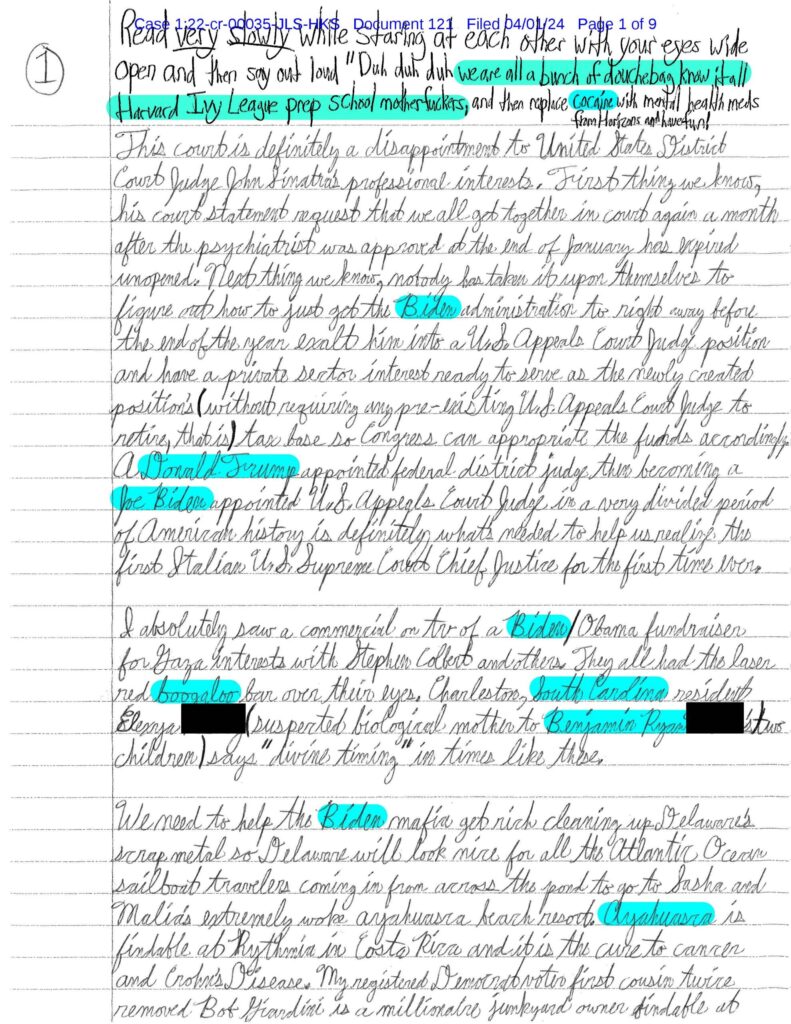 Case 1:22-cr-00035-JLS-HKS Document 121 Filed 04/01/24 Page 1 of 9
1
Read very slowly while staring at each other with your eyes wide
open and then say out loud "Duh duh duh we are all a bunch of douchebag know it all
Harvard Ivy League prep school motherfuckers, and then replace cocaine with mental health meds
from Horizons and have fun!
This court is definitely a disappointment to United States District
Court Judge John Sinatra's professional interests. First thing we know,
his court statement request that we all get together in court again a month
after the psychiatrist was approved at the end of January has expired
unopened. Next thing we know, nobody has taken it upon themselves to
figure out how to just get the Biden administration to right away before
the end of the year exalt him into a U.S. Appeals Court Judge position
and have a private sector interest ready to serve as the newly created
position's (without requiring any pre-existing U.S. Appeals Court Judge to
retire, that is) tax base so Congress can appropriate the funds accordingly.
A Donald Trump appointed federal district judge then becoming a
Joe Biden appointed U.S. Appeals Court Judge in a very divided period
of American history is definitely what's needed to help us realize the
first Italian U.S. Supreme Court Chief Justice for the first time ever.
I absolutely saw a commercial on tv of a Biden/Obama fundraiser
for Gaza interests with Stephen Colbert and others. They all had the laser
red boogaloo bar over their eyes. Charleston, South Carolina resident
(suspected biological mother to Benjamin Ryan 's two
children) says "divine timing" in times like these.
We need to help the Biden mafia get rich cleaning up Delaware's
scrap metal so Delaware will look nice for all the Atlantic Ocean
sailboat travelers coming in from across the pond to go to Sasha and
Malia's extremely woke ayahuasca beach resort. Ayahuasca is
findable at Rythmia in Costa Rica and it is the cure to cancer
and Crohn's Disease. My registered Democrat voter first cousin twice
removed Bob Giardini is a millionaire junkyard owner findable at